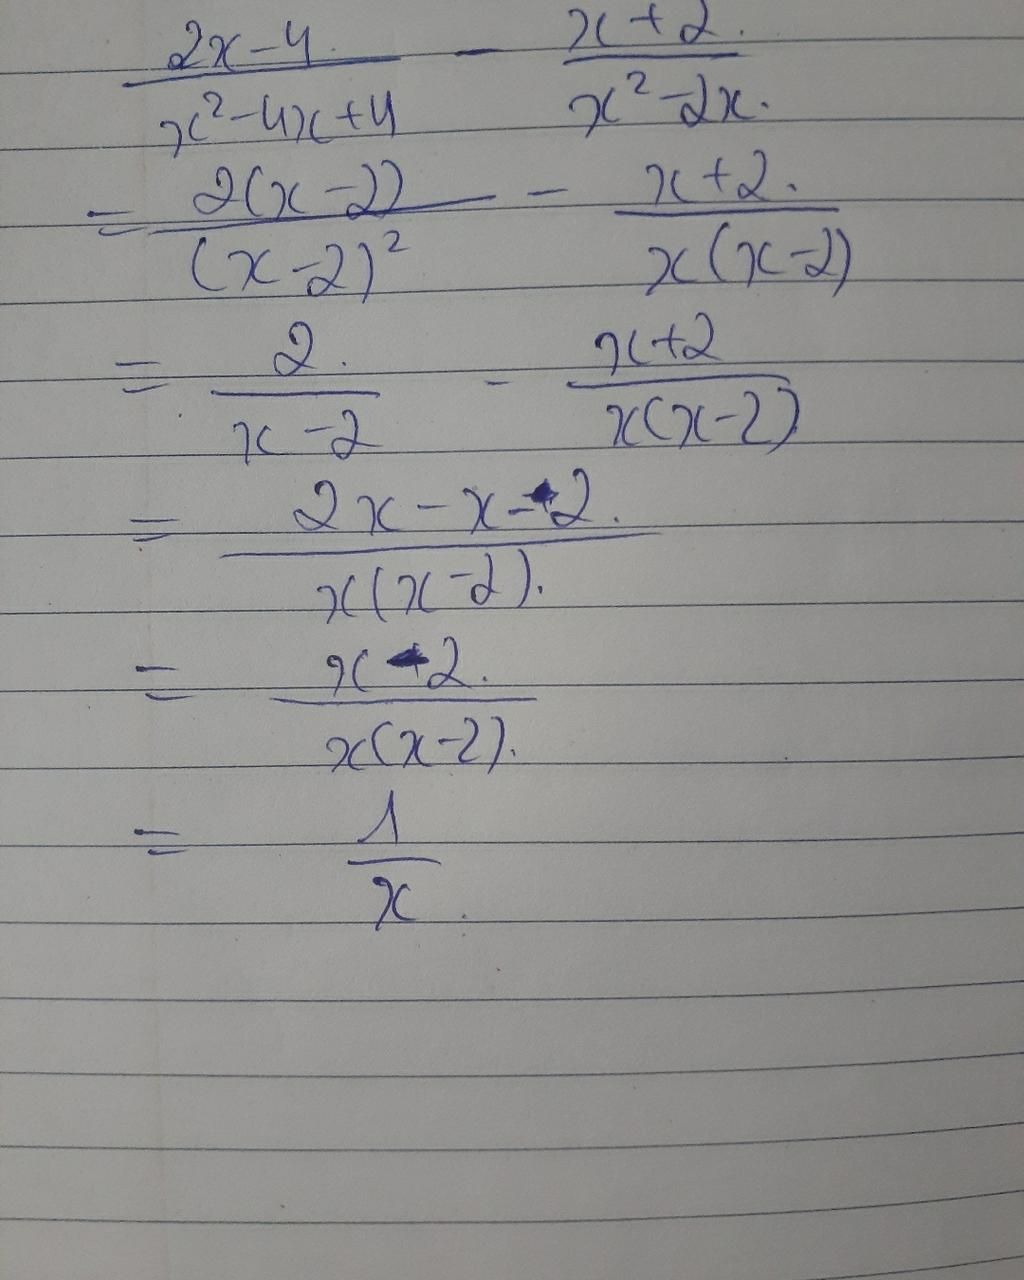 (2x-4)/(x²-4x+4) - (x+2)/(x²-2x).
= 2(x-2)/(x-2)² - (x+2)/(x(x-2))
= 2/(x-2) - (x+2)/(x(x-2))
= (2x-x-2)/(x(x-2)).
= (x-2)/(x(x-2)).
= 1/x.